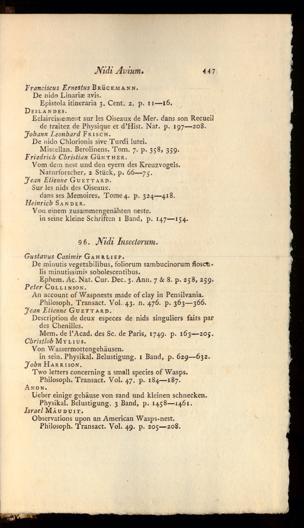 Nidi Avium. 447
Franciscus Ernestus BRÜCKMANN.
De nido Linariæ avis.
Epistola itineraria 3. Cent. 2. p. 11—16.
DESLANDES.
Eclaircissement sur les Oiseaux de Mer. dans son Recueil
de traitez de Physique et d'Hist. Nat. p. 197—208.
Johann Leonhard FRISCH.
De nido Chlorionis sive Turdi lutei.
Miscellan. Berolinens. Tom. 7. p. 358, 359.
Friedrich Christian GÜNTHER.
Vom dem nest und den eyern des Kreuzvogels.
Naturforscher, 2 Stück, p. 66—75.
Jean Etienne GUETTARD.
Sur les nids des Oiseaux.
dans ses Memoires, Tome 4. p. 324—418.
Heinrich SANDER.
Von einem zusammengenähten neste.
in seine kleine Schriften 1 Band, p. 147—154.
96. Nidi Insectorum.
Gustavus Casimir GAHRLIEP.
De minutis vegetabilibus, foliorum sambucinorum floscu-
lis minutissimis sobolescentibus.
Ephem. Ac. Nat. Cur. Dec. 3. Ann. 7 & 8. p. 258, 259.
Peter COLLINSON.
An account of Waspnests made of clay in Pensilvania.
Philosoph. Transact. Vol. 43. n. 476. p. 363—366.
Jean Etienne GUETTARD.
Description de deux especes de nids singuliers faits par
des Chenilles.
Mem. de l'Acad. des Sc. de Paris, 1749. p. 163—205.
Christlob MYLIUS.
Von Wassermottengehäusen.
in sein. Physikal. Belustigung. 1 Band, p. 629—632.
John HARRISON.
Two letters concerning a small species of Wasps.
Philosoph. Transact. Vol. 47. p. 184—187.
ANON.
Ueber einige gehäuse von sand und kleinen schnecken.
Physikal. Belustigung. 3 Band, p. 1458—1461.
Israel MAUDUIT.
Observations upon an American Wasps-nest.
Philosoph. Transact. Vol. 49. p. 205—208.